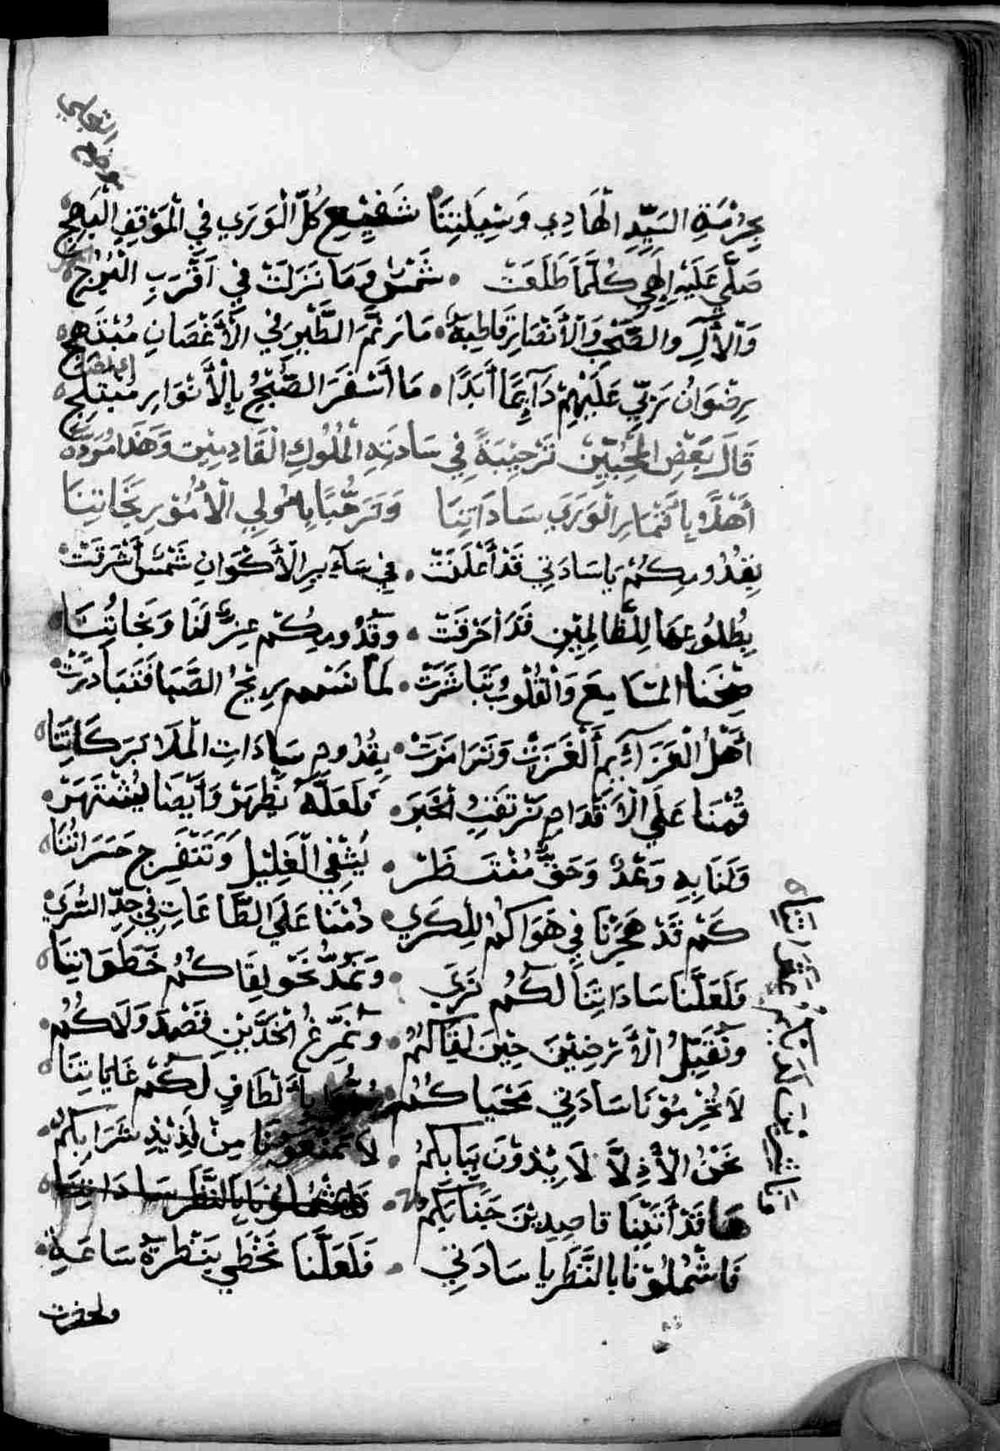 بِحُرْمَةِ السَيِّدِ الْهَادِي وَسِيلَتِنَا شَفِيعِ كُلِّ الْوَرَي فِي الْمَوْقِفِ
صَلَّي عَلَيْهِ اِلَهِي كُلَّمَا طَلَعَتْ شَمْسٌ وَمَا نَزَلَتْ فِي اَقْرَبِ الْبُرُجِ
وَالْآلِ وَالصَّحْبِ وَالْأَنْصَارِ قَاطِبَةً مَا تَرَنَّمَ الطَّيْرُ فِي الْأَغْصَانِ مُبْتَهِجِ
رِضْوَانُ رَبِّي عَلَيْهِمْ دَآئِمًا أَبَدًا مَا أَسْفَرَ الصُّبْحُ بِالْأَنْوَارِ مُبْتَلِجِ
قَالَ بَعْضِ الْمُحِبِّينَ تَرْحِيبَةً فِي سَادَتِهِ الْمُلُوكِ الْقَادِمِينَ وَهَذَا
أَهْلًا بِأَقْمَارِ الْوَرَي سَادَاتِنَا وَتَرَحُّبًا يَامُولِي الْأُمُوْرِ نَجَاتِنَا
بِقُدُومِكُمْ يَا سَادَتِي قَدْ أَعْلَنَتْ فِي سَآئِرِ الْأَكْوَانِ شَمْسٌ أَشْرَقَتْ
بِطُلُوعِهَا لِلظَّالِمِيْنِ قَدَ احْرَقَتْ وَقُدُومِكُمْ عِزٌّ لَنَا وَنَجَاتُنَا
الْمَسَامِعَ وَالْقُلُوبُ تَبَاشَرَتْ لَمَّا نَسَمْ رِيْحُ الصَّبَا فَتَبَادَرَتْ
أَهْلُ الْعَزَآئِمِ بِقُدُومِ سَادَاتِ الْمَلَا بَرَكَاتِنَا
قُمْنَا عَلَي الْأَقْدَامِ نَرْتَقِبِ الْخَبَرْ فَلَعَلَّهُ يَظْهَرْ وَأَيْضًا يُشْتَهَرْ
وَلَنَا بِهِ وَعْدٌ وَحَقٌّ مُنْتَظَرْ يُشْفِي الْغَلِيْلَ وَتَنْفَرِج حَسَرَاتُنَا
كَمْ قَدْ هَجَرْنَا فِي هَوَاكُمْ لِلْكَرَي دُمْنَا عَلَي الطَّاعَاتِ فِي جِدِّ السُّرَي
فَلَعَلَّنَا سَادَاتِنَا لَكُمْ نَرَي وَنَمُدُّ نَحْوَ لِقَاكُمُ خَطَوَاتِنَا
وَنُقَبِّلُ الْأَرْضِيْنَ حِيْنَ لِقَاكُمُ وَنُمَرِّغُ الْخَدَّيْنِ قَصْدَ وَلَاكُمُ
لَا تُحْرِمُوْنَا سَادَتِي مَحْيَاكُمُ بِأَلْطَافٍ لَكُمْ غَايَاتِنَا
نَحْنُ الْأَذِلَّا لَائِذُوْنَ بِبَابِكُمُ لَا تَمْنَعُوْنَا مِنْ لَذِيْذِ شَرَابِكُمُ
هَا قَدْ أَتَيْنَا قَاصِدِيْنَ جَنَابَكُمُ فَاشْمُلُوْنَا بِالنَّظَرِ سَادَاتِنَا
فَاشْمُلُوْنَا بِالنَّظَرِ يَا سَادَتِي فَلَعَلَّنَا نَحْظَي بِنَظْرَةِ سَاعَةِ